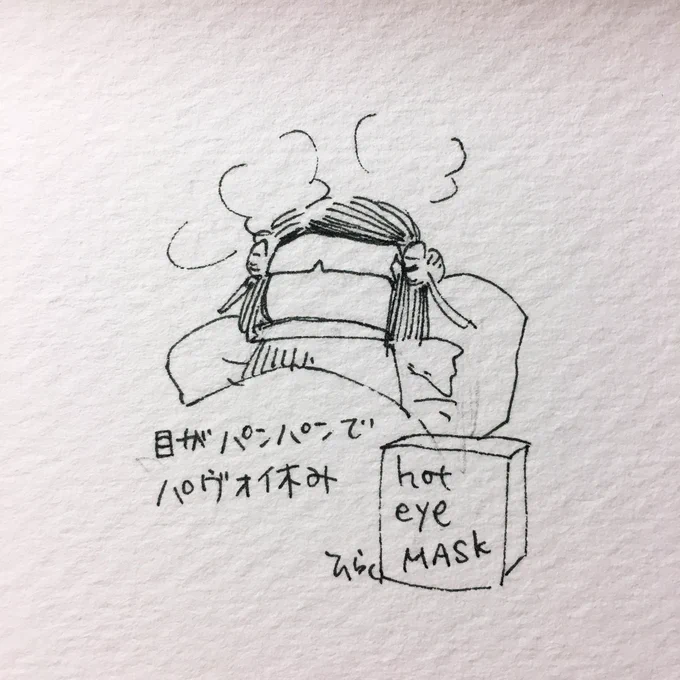 目がパンパンで
パヴォイ休み
hot
eye
MASK
ひらく